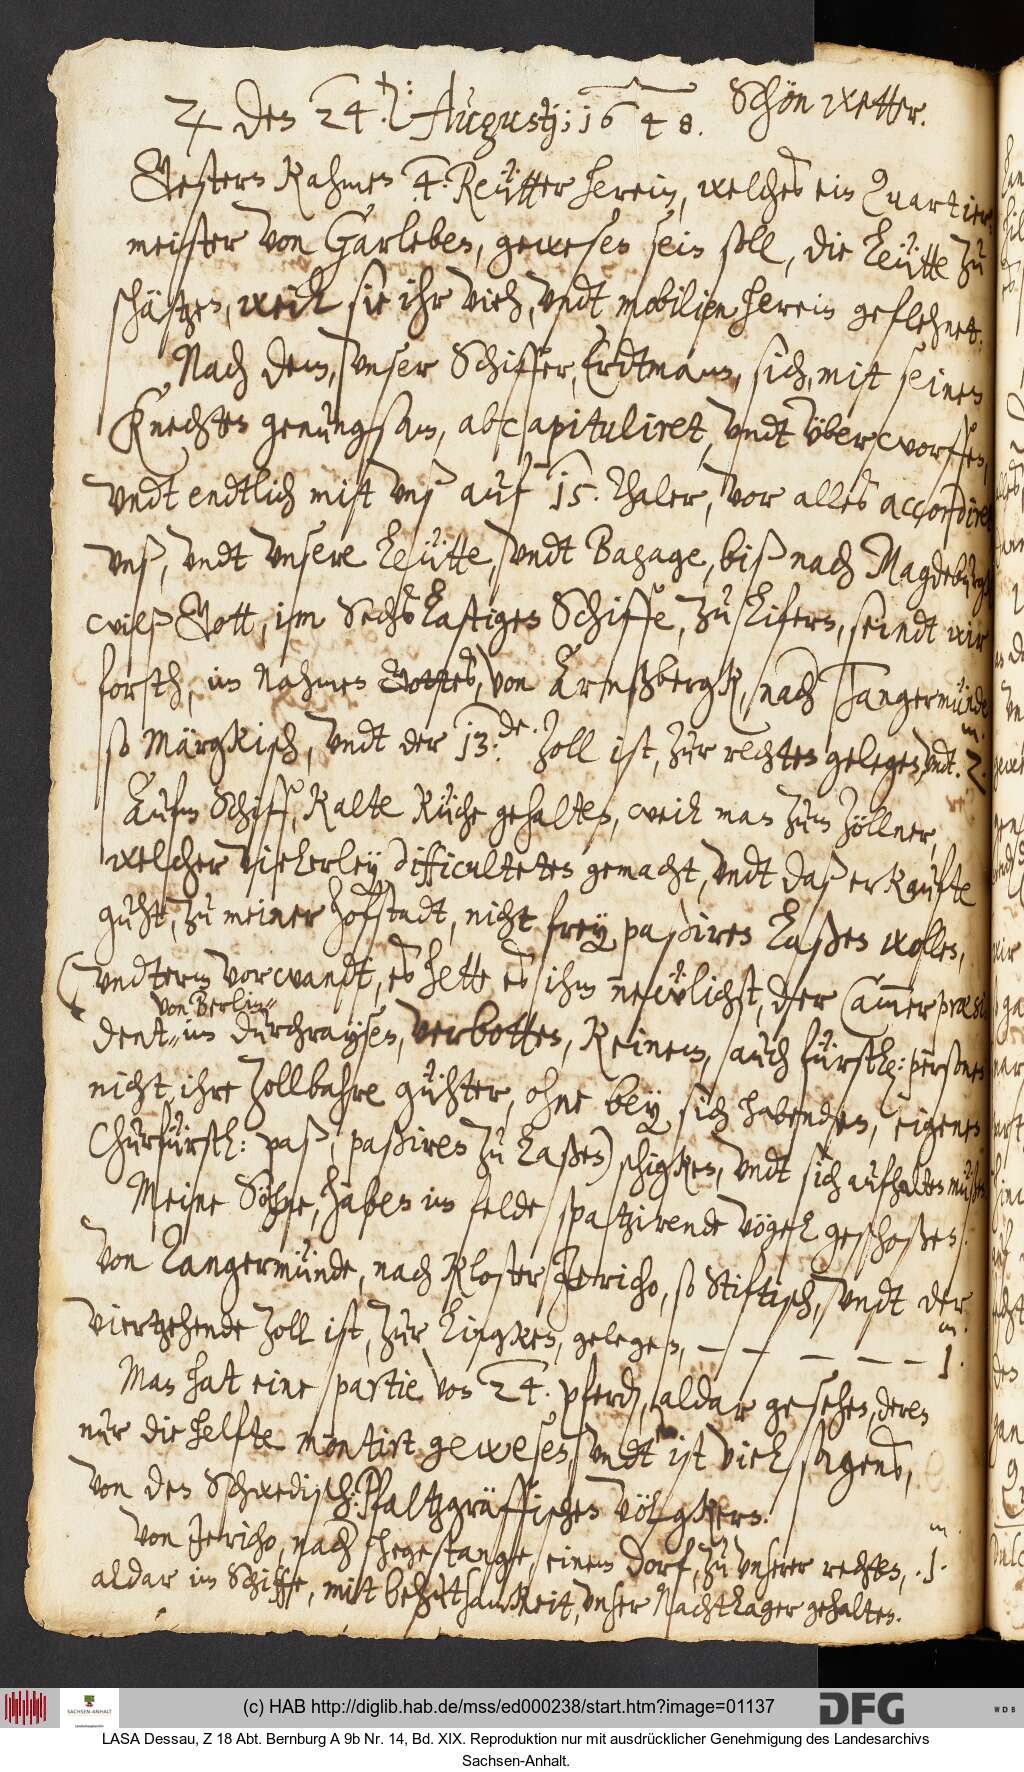 ♃ den 24.ten: Augustj; 1648. Schön wetter.
Gestern kahmen 4. Reütter herein, welches ein Quartier¬
meister von Garleben, gewesen sein soll, die Leütte zu
schätzen, weil sie ihr vieh, vndt mobilien herein geflehnet.
Nach dem, vnser Schiffer, Erdtmann, sich, mit seinen
Knechten genungsam, abcapituliret, vndt vberworffen,
vndt endtlich mitt vnß auf 15. Thaler, vor alles accordiret
vnß, vndt vnsere Leütte, vndt Bagage, biß nach Magdeburgk
wilß Gott, im Sechs Lastigen Schiffe, zu lifern, seindt wir
forth, im nahmen Gottes, von Arneßbergk, nach Tangermünde
so Märgkisch, vndt der 13.de. Zoll ist, zur rechten gelegen, vndt. 2. m.
Aufm Schiff, kalte küche gehalten, weil man zum Zöllner,
welcher vielerley difficulteten gemacht, vndt daß erkaufte
guht, zu meiner hofstadt, nicht frey paßiren laßen wollen,
(vndterm vorwandt, es hette es ihm newlichst, der Cammer præsi
dent „von Berlin“ im durchraysen, verbotten, keinem, auch fürstl: personen
nicht, ihre Zollbahre gühter, ohne bey sich habenden, eigenen
Churfürstl: paß, paßiren zu laßen) schigken, vndt sich aufhalten müßen.
Meine Söhne, haben im felde spatzirende vögel geschoßen.
Von Tangermünde, nach Kloster Jericho, so Stiftisch, vndt der
viertzehende Zoll ist, zur lingken, gelegen, — — — — — 1. m.
Man hat eine partie von 24. pferden, aldar gesehen, deren
nur die helfte montirt gewesen, vndt ist viel sagens,
von den Schwedisch: Pfaltzgräffischen völgkern.
Von Jericho, nach Schegestange, einem dorf, zu vnserer rechten, . 1. m.
aldar im Schiffe, mitt behutsamkeit, vnser Nachtlager gehalten.
(c) HAB http://diglib.hab.de/mss/ed000238/start.htm?image=01137
SACHSEN-ANHALT
DFG
WDB
LASA Dessau, Z 18 Abt. Bernburg A 9b Nr. 14, Bd. XIX. Reproduktion nur mit ausdrücklicher Genehmigung des Landesarchivs
Sachsen-Anhalt.